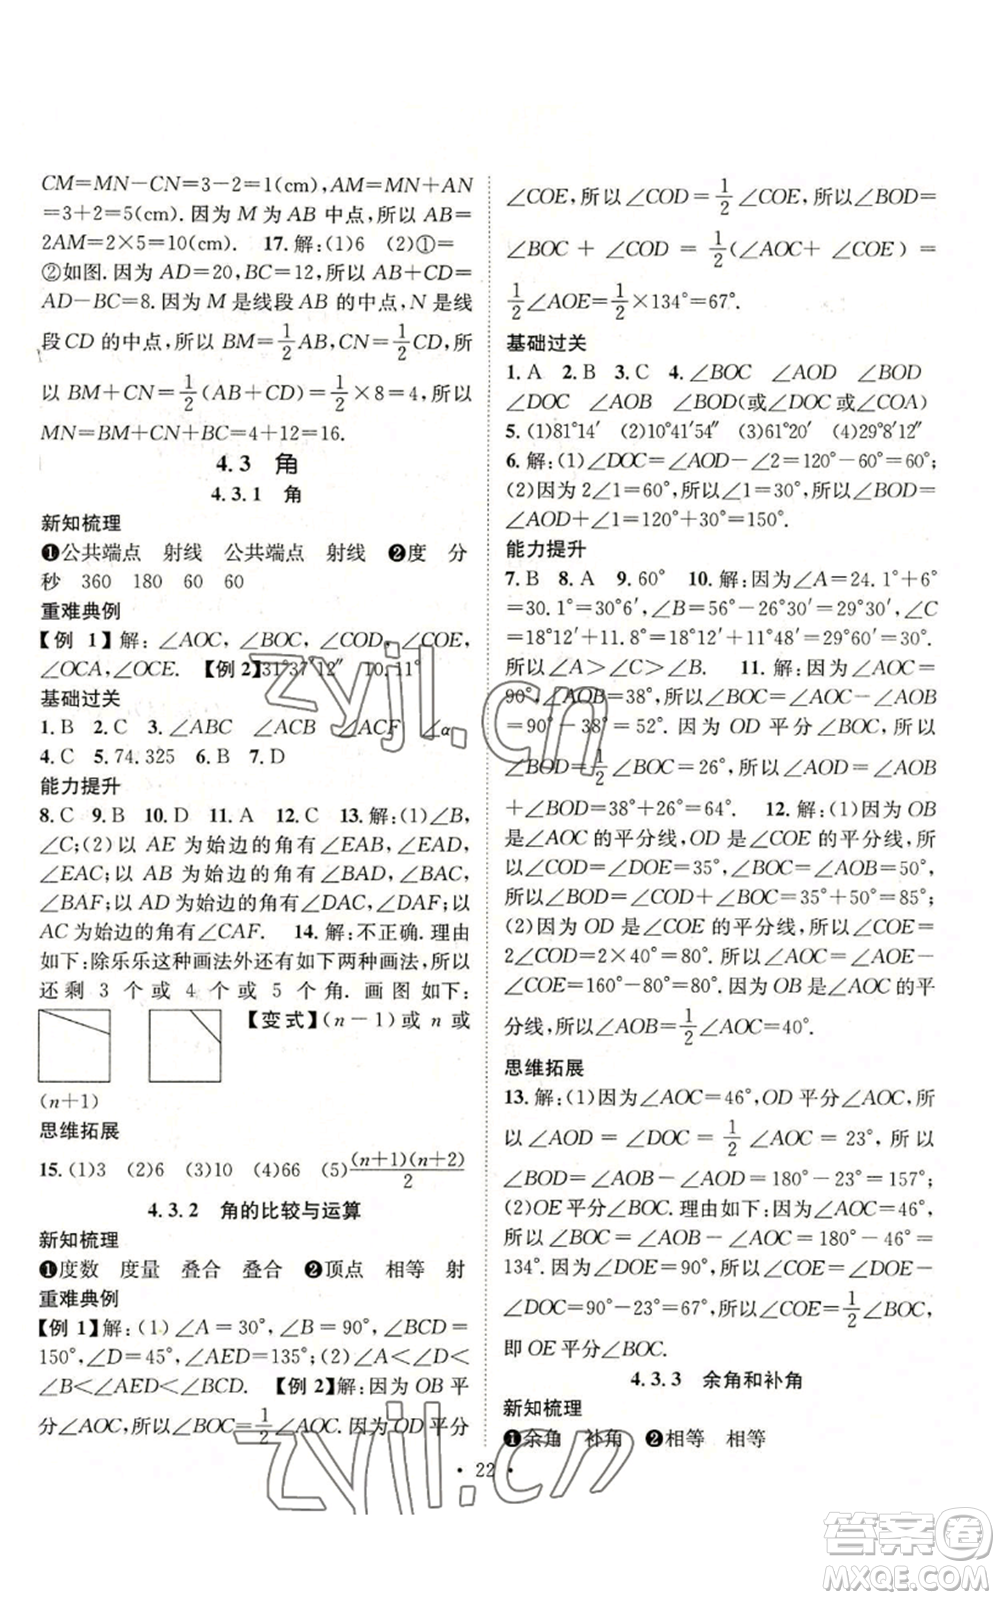 CM=MN−CN=3−2=1(cm),AM=MN+AN
=3+2=5(cm).因为 M 为 AB 中点,所以 AB=
2AM=2×5=10(cm). 17.解:(1)6 (2)①=
②如图.因为 AD=20,BC=12,所以 AB+CD=
AD−BC=8.因为 M 是线段 AB 的中点,N 是线
段 CD 的中点,所以 BM=1/2AB,CN=1/2CD,所
以 BM+CN=1/2(AB+CD)=1/2×8=4,所以
MN=BM+CN+BC=4+12=16.
4.3 角
4.3.1 角
新知梳理
❶公共端点 射线 公共端点 射线 ❷度 分
秒 360 180 60 60
重难典例
【例 1】解:∠AOC,∠BOC,∠COD,∠COE,
∠OCA,∠OCE. 【例 2】31°37′12″ 10.11°
基础过关
1.B 2.C 3.∠ABC ∠ACB ∠ACF ∠α
4.C 5.74.325 6.B 7.D
能力提升
8.C 9.B 10.D 11.A 12.C 13.解:(1)∠B,
∠C;(2)以 AE 为始边的角有∠EAF,∠EAD,
∠EAC;以 BA 为始边的角有∠BAD,∠BAC,
∠BAF;以 AD 为始边的角有∠DAC,∠DAF;以
AC 为始边的角有∠CAF. 14.解:不正确.理由
如下:除乐乐这种画法外还有如下两种画法,所以
还剩 3 个或 4 个或 5 个角.画图如下:
【变式】(n−1)或 n 或
(n+1)
思维拓展
15.(1)3 (2)6 (3)10 (4)66 (5)(n+1)(n+2)/2
4.3.2 角的比较与运算
新知梳理
❶度数 度量 叠合 叠合 ❷顶点 相等 射
重难典例
【例 1】解:(1)∠A=30°,∠B=90°,∠BCD=
150°,∠D=45°,∠AED=135°;(2)∠A<∠D<
∠B<∠AED<∠BCD. 【例 2】解:因为 OB 平
分∠AOC,所以∠BOC=1/2∠AOC.因为 OD 平分
∠COE,所以∠COD=1/2∠COE,所以∠BOD=
∠BOC+∠COD=1/2(∠AOC+∠COE)=
1/2∠AOE=1/2×134°=67°.
基础过关
1.A 2.B 3.C 4.∠BOC ∠AOD ∠BOD
∠DOC ∠AOB ∠BOD(或∠DOC 或∠COA)
5.(1)81°14′ (2)10°17′54″ (3)61°20′ (4)29°8′12″
6.解:(1)∠DOC=∠AOD−∠2=120°−60°=60°;
(2)因为 2∠1=60°,所以∠1=30°,所以∠BOD=
∠AOD+∠1=120°+30°=150°.
能力提升
7.B 8.A 9.60° 10.解:因为∠A=24.1°+6°
=30.1°=30°6′,∠B=56°−26°30′=29°30′,∠C
=18°12′+11.8°=18°12′+11°48′=29°60′=30°.
所以∠A>∠C>∠B. 11.解:因为∠AOC=
90°,∠AOB=38°,所以∠BOC=∠AOC−∠AOB
=90°−38°=52°.因为 OD 平分∠BOC,所以
∠BOD=1/2∠BOC=26°,所以∠AOD=∠AOB
+∠BOD=38°+26°=64°. 12.解:(1)因为 OB
是∠AOC 的平分线,OD 是∠COE 的平分线,所
以∠COD=∠DOE=35°,∠BOC=∠AOB=50°,
所以∠BOD=∠COD+∠BOC=35°+50°=85°;
(2)因为 OD 是∠COE 的平分线,所以∠COE=
2∠COD=2×40°=80°,所以∠AOC=∠AOE−
∠COE=160°−80°=80°.因为 OB 是∠AOC 的平
分线,所以∠AOB=1/2∠AOC=40°.
思维拓展
13.解:(1)因为∠AOC=46°,OD 平分∠AOC,所
以∠AOD=∠DOC=1/2∠AOC=23°,所以
∠BOD=∠AOB−∠AOD=180°−23°=157°;
(2)OE 平分∠BOC.理由如下:因为∠AOC=46°,
所以∠BOC=∠AOB−∠AOC=180°−46°=
134°.因为∠DOE=90°,所以∠COE=∠DOE−
∠DOC=90°−23°=67°,所以∠COE=1/2∠BOC,
即 OE 平分∠BOC.
4.3.3 余角和补角
新知梳理
❶余角 补角 ❷相等 相等
• 22 •
zyjl.cn
zyjl.cn
答案卷
MXQE.COM